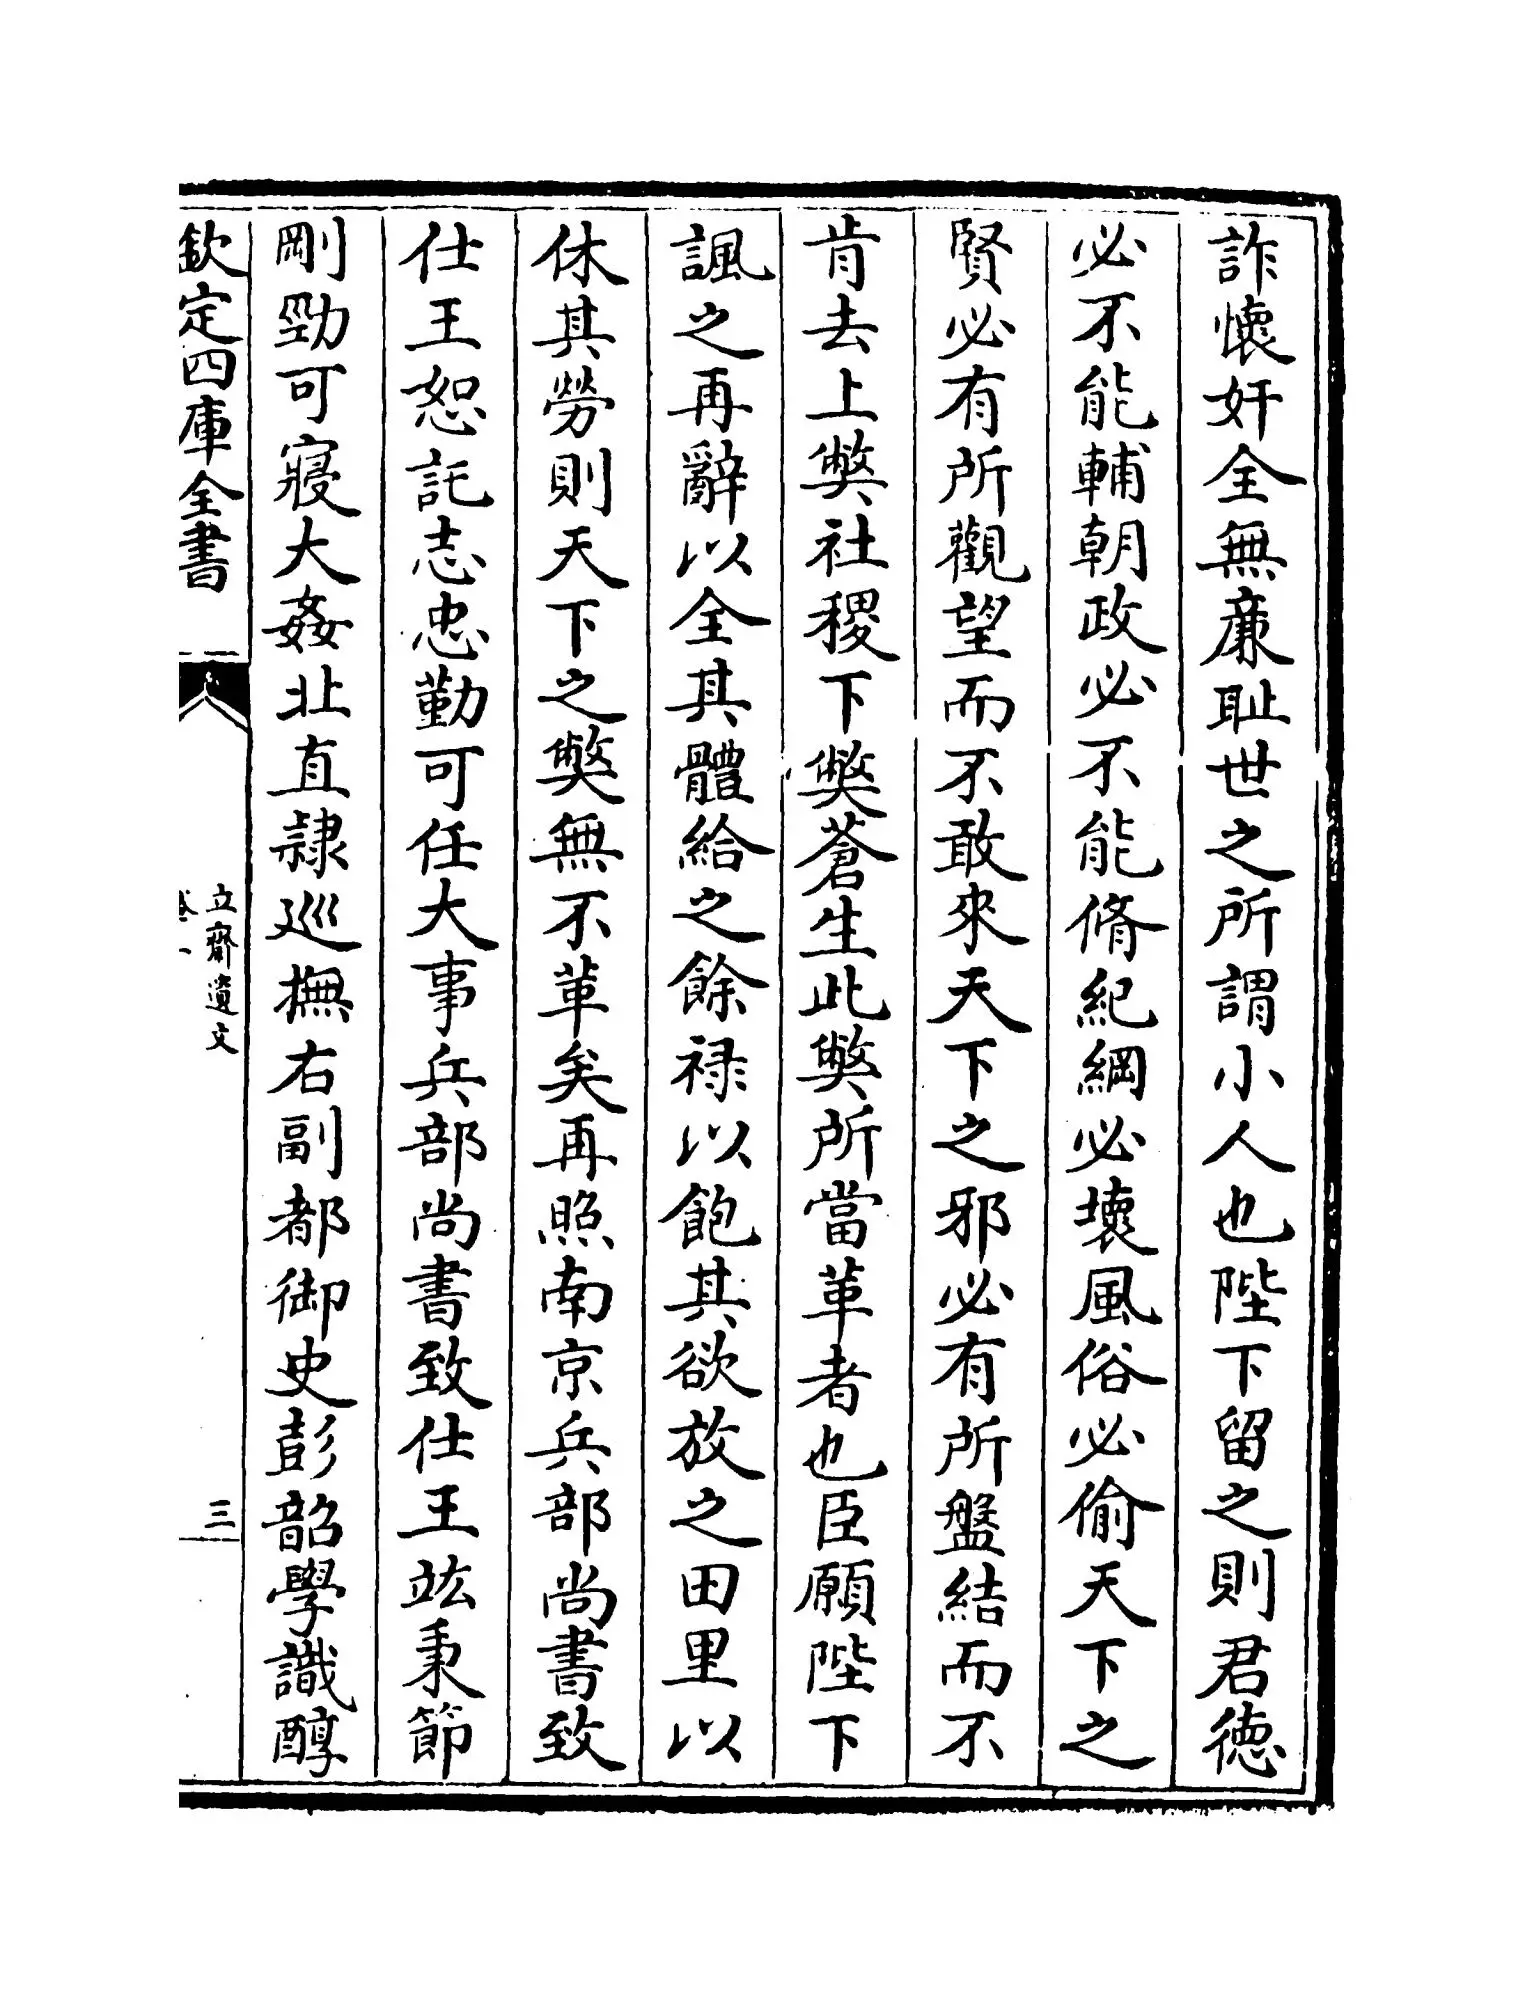 詐懷奸全無亷恥世之所謂小人也陛下留之則君德
必不能輔朝政必不能脩紀綱必壞風俗必偷天下之
賢必有所觀望而不敢來天下之邪必有所盤結而不
肯去上弊社稷下弊蒼生此弊所當革者也臣願陛下
諷之再辭以全其體給之餘祿以飽其欲放之田里以
休其勞則天下之弊無不革矣再照南京兵部尚書致
仕王恕託志忠勤可任大事兵部尚書致仕王竑秉節
剛勁可寢大姦北直隷巡撫右副都御史彭韶學識醇
欽定四庫全書
立齋遺文
卷一
三